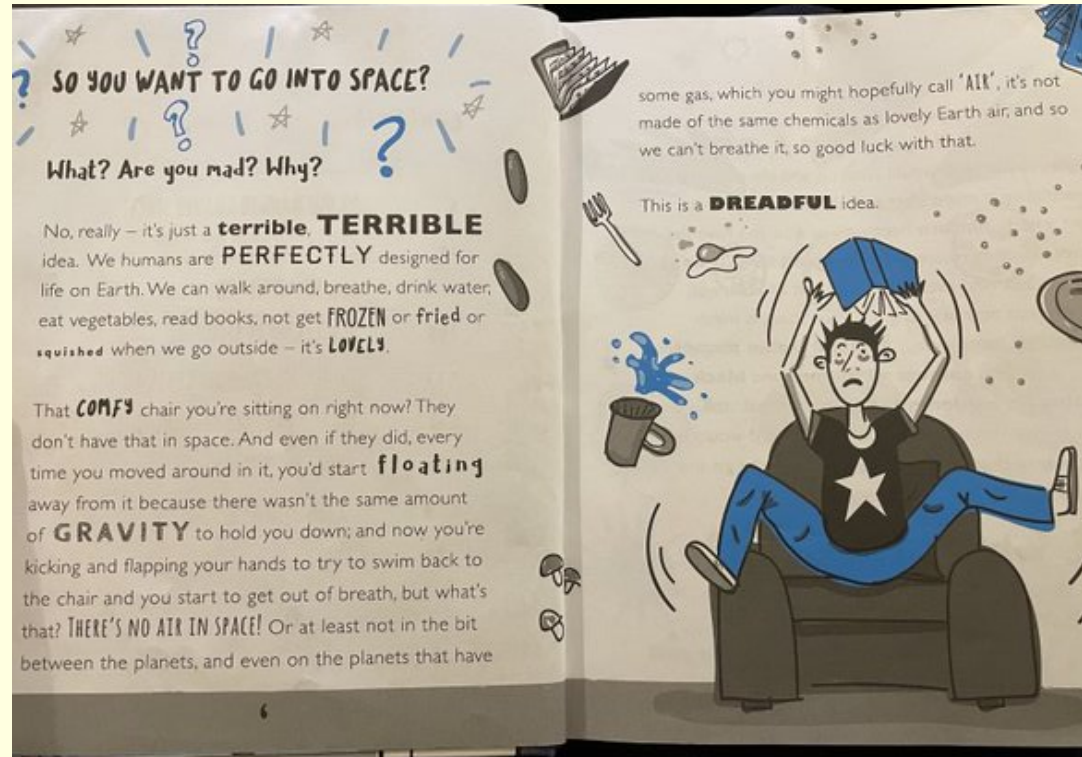 SO YOU WANT TO GO INTO SPACE?
What? Are you mad? Why?
No, really – it's just a terrible, TERRIBLE
idea. We humans are PERFECTLY designed for
life on Earth. We can walk around, breathe, drink water,
eat vegetables, read books, not get FROZEN or fried or
squished when we go outside – it's LOVELY.
That COMFY chair you're sitting on right now? They
don't have that in space. And even if they did, every
time you moved around in it, you'd start floating
away from it because there wasn't the same amount
of GRAVITY to hold you down; and now you're
kicking and flapping your hands to try to swim back to
the chair and you start to get out of breath, but what's
that? THERE'S NO AIR IN SPACE! Or at least not in the bit
between the planets, and even on the planets that have
6
some gas, which you might hopefully call 'AIR', it's not
made of the same chemicals as lovely Earth air, and so
we can't breathe it, so good luck with that.
This is a DREADFUL idea.